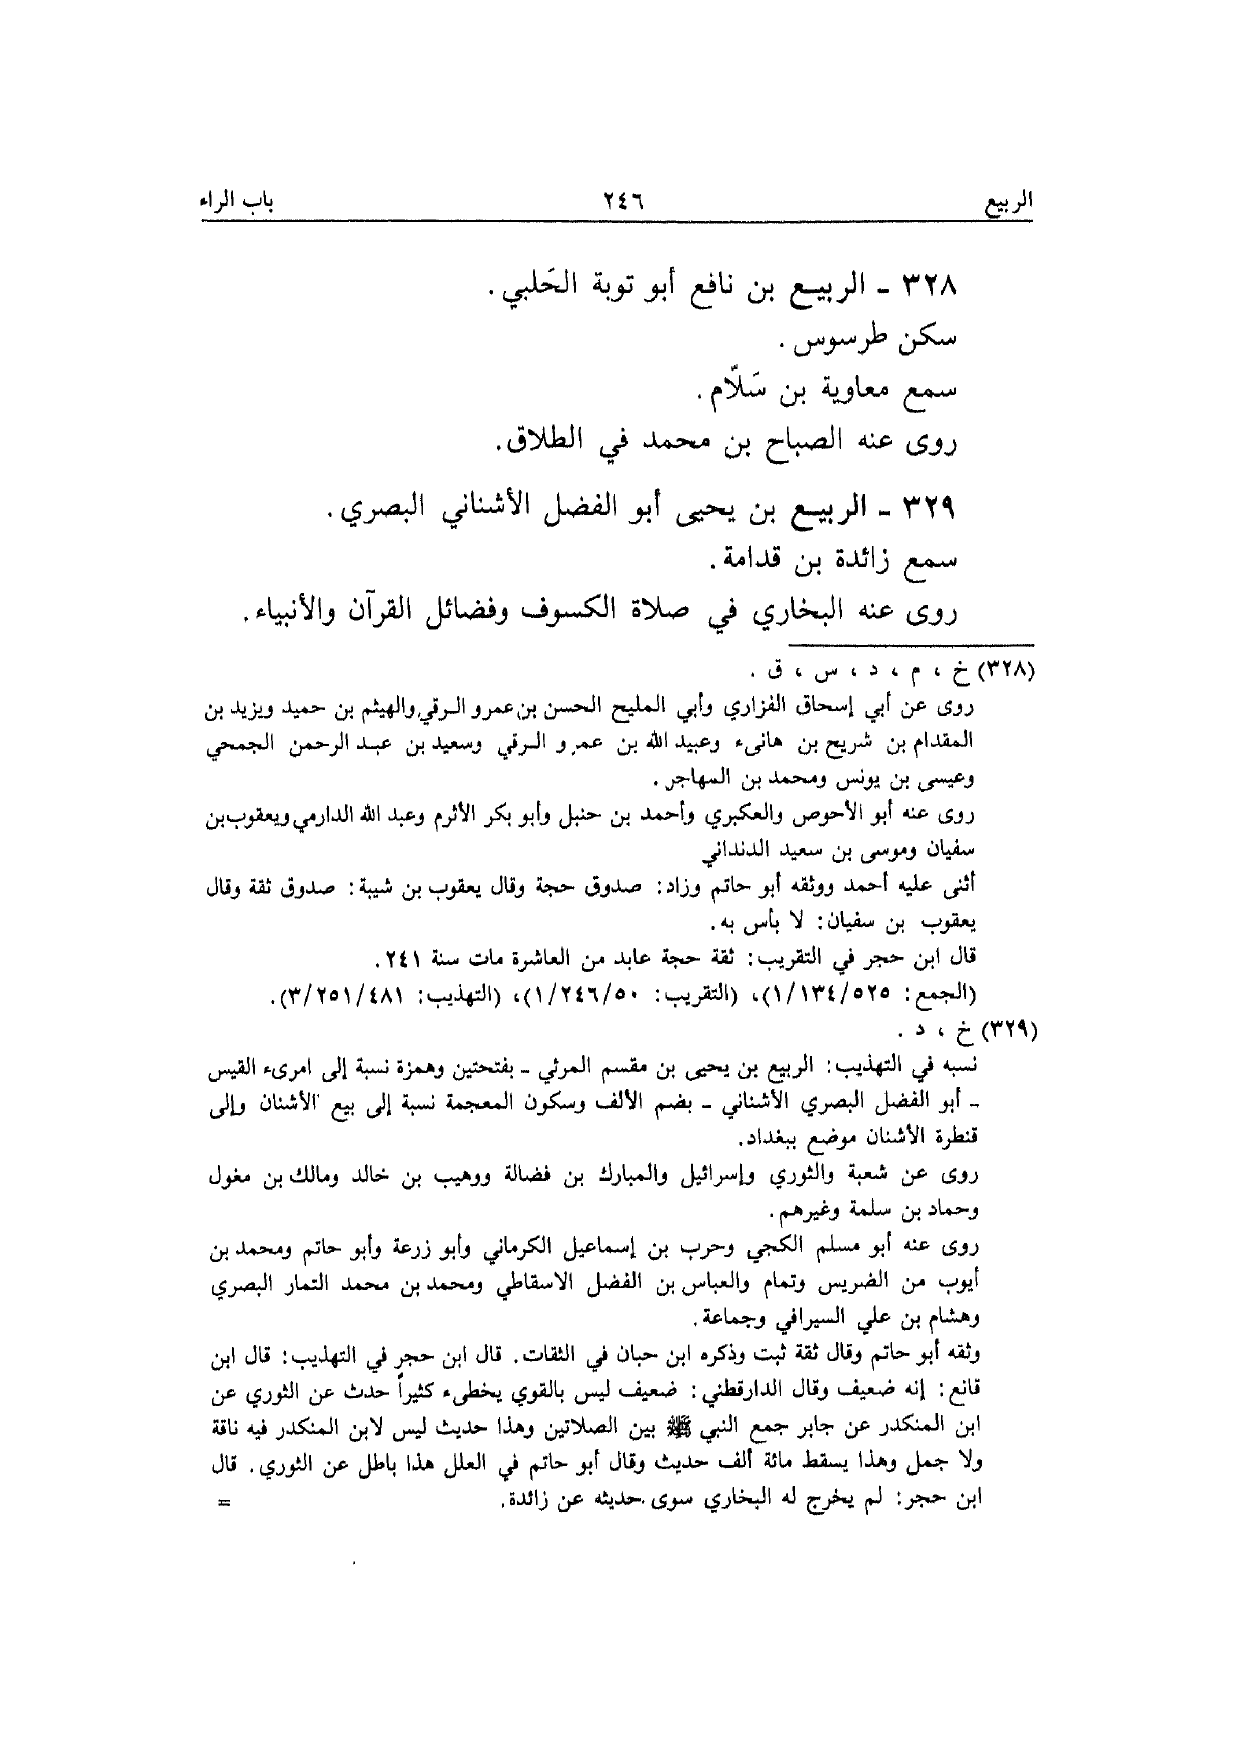 الربيع ٢٤٦ باب الراء
٣٢٨ - الربيع بن نافع أبو توبة الحَلبي.
سكن طرسوس.
سمع معاوية بن سَلاَّم.
روى عنه الصباح بن محمد في الطلاق.
٣٢٩ - الربيع بن يحيى أبو الفضل الأشناني البصري.
سمع زائدة بن قدامة.
روى عنه البخاري في صلاة الكسوف وفضائل القرآن والأنبياء.
(٣٢٨) خ ، م ، د ، س ، ق .
روى عن أبي إسحاق الفزاري وأبي المليح الحسن بن عمرو الرقي والهيثم بن حميد ويزيد بن
المقدام بن شريح بن هانىء وعبيد الله بن عمرو الرقي وسعيد بن عبد الرحمن الجمحي
وعيسى بن يونس ومحمد بن المهاجر.
روى عنه أبو الأحوص والعكبري وأحمد بن حنبل وأبو بكر الأثرم وعبد الله الدارمي ويعقوب بن
سفيان وموسى بن سعيد الدنداني
أثنى عليه أحمد ووثقه أبو حاتم وزاد: صدوق حجة وقال يعقوب بن شيبة: صدوق ثقة وقال
يعقوب بن سفيان: لا بأس به.
قال ابن حجر في التقريب: ثقة حجة عابد من العاشرة مات سنة ٢٤١.
(الجمع: ١/١٣٤/٥٢٥)، (التقريب: ١/٢٤٦/٥٠)، (التهذيب: ٣/٢٥١/٤٨١).
(٣٢٩) خ ، د .
نسبه في التهذيب: الربيع بن يحيى بن مقسم المرئي - بفتحتين وهمزة نسبة إلى امرىء القيس
- أبو الفضل البصري الأشناني - بضم الألف وسكون المعجمة نسبة إلى بيع الأشنان وإلى
قنطرة الأشنان موضع ببغداد.
روى عن شعبة والثوري وإسرائيل والمبارك بن فضالة ووهيب بن خالد ومالك بن مغول
وحماد بن سلمة وغيرهم.
روى عنه أبو مسلم الكجي وحرب بن إسماعيل الكرماني وأبو زرعة وأبو حاتم ومحمد بن
أيوب من الضريس وتمام والعباس بن الفضل الاسقاطي ومحمد بن محمد التمار البصري
وهشام بن علي السيرافي وجماعة.
وثقه أبو حاتم وقال ثقة ثبت وذكره ابن حبان في الثقات. قال ابن حجر في التهذيب: قال ابن
قانع: إنه ضعيف وقال الدارقطني: ضعيف ليس بالقوي يخطىء كثيراً حدث عن الثوري عن
ابن المنكدر عن جابر جمع النبي ﷺ بين الصلاتين وهذا حديث ليس لابن المنكدر فيه ناقة
ولا جمل وهذا يسقط مائة ألف حديث وقال أبو حاتم في العلل هذا باطل عن الثوري. قال
ابن حجر: لم يخرج له البخاري سوى حديثه عن زائدة. =